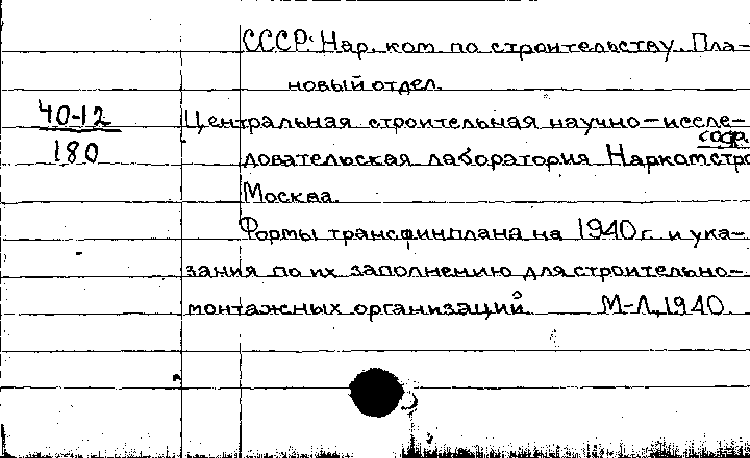 СССР. Нар. ком. по строительству. Пла-
новый отдел.
40-12
180
Центральная строительная научно-иссле-
довательская лаборатория Наркомстро
Москва.
Формы трансфинплана на 1940 г. и ука-
зания по их заполнению для строительно-
монтажных организаций. М-Л, 1940.